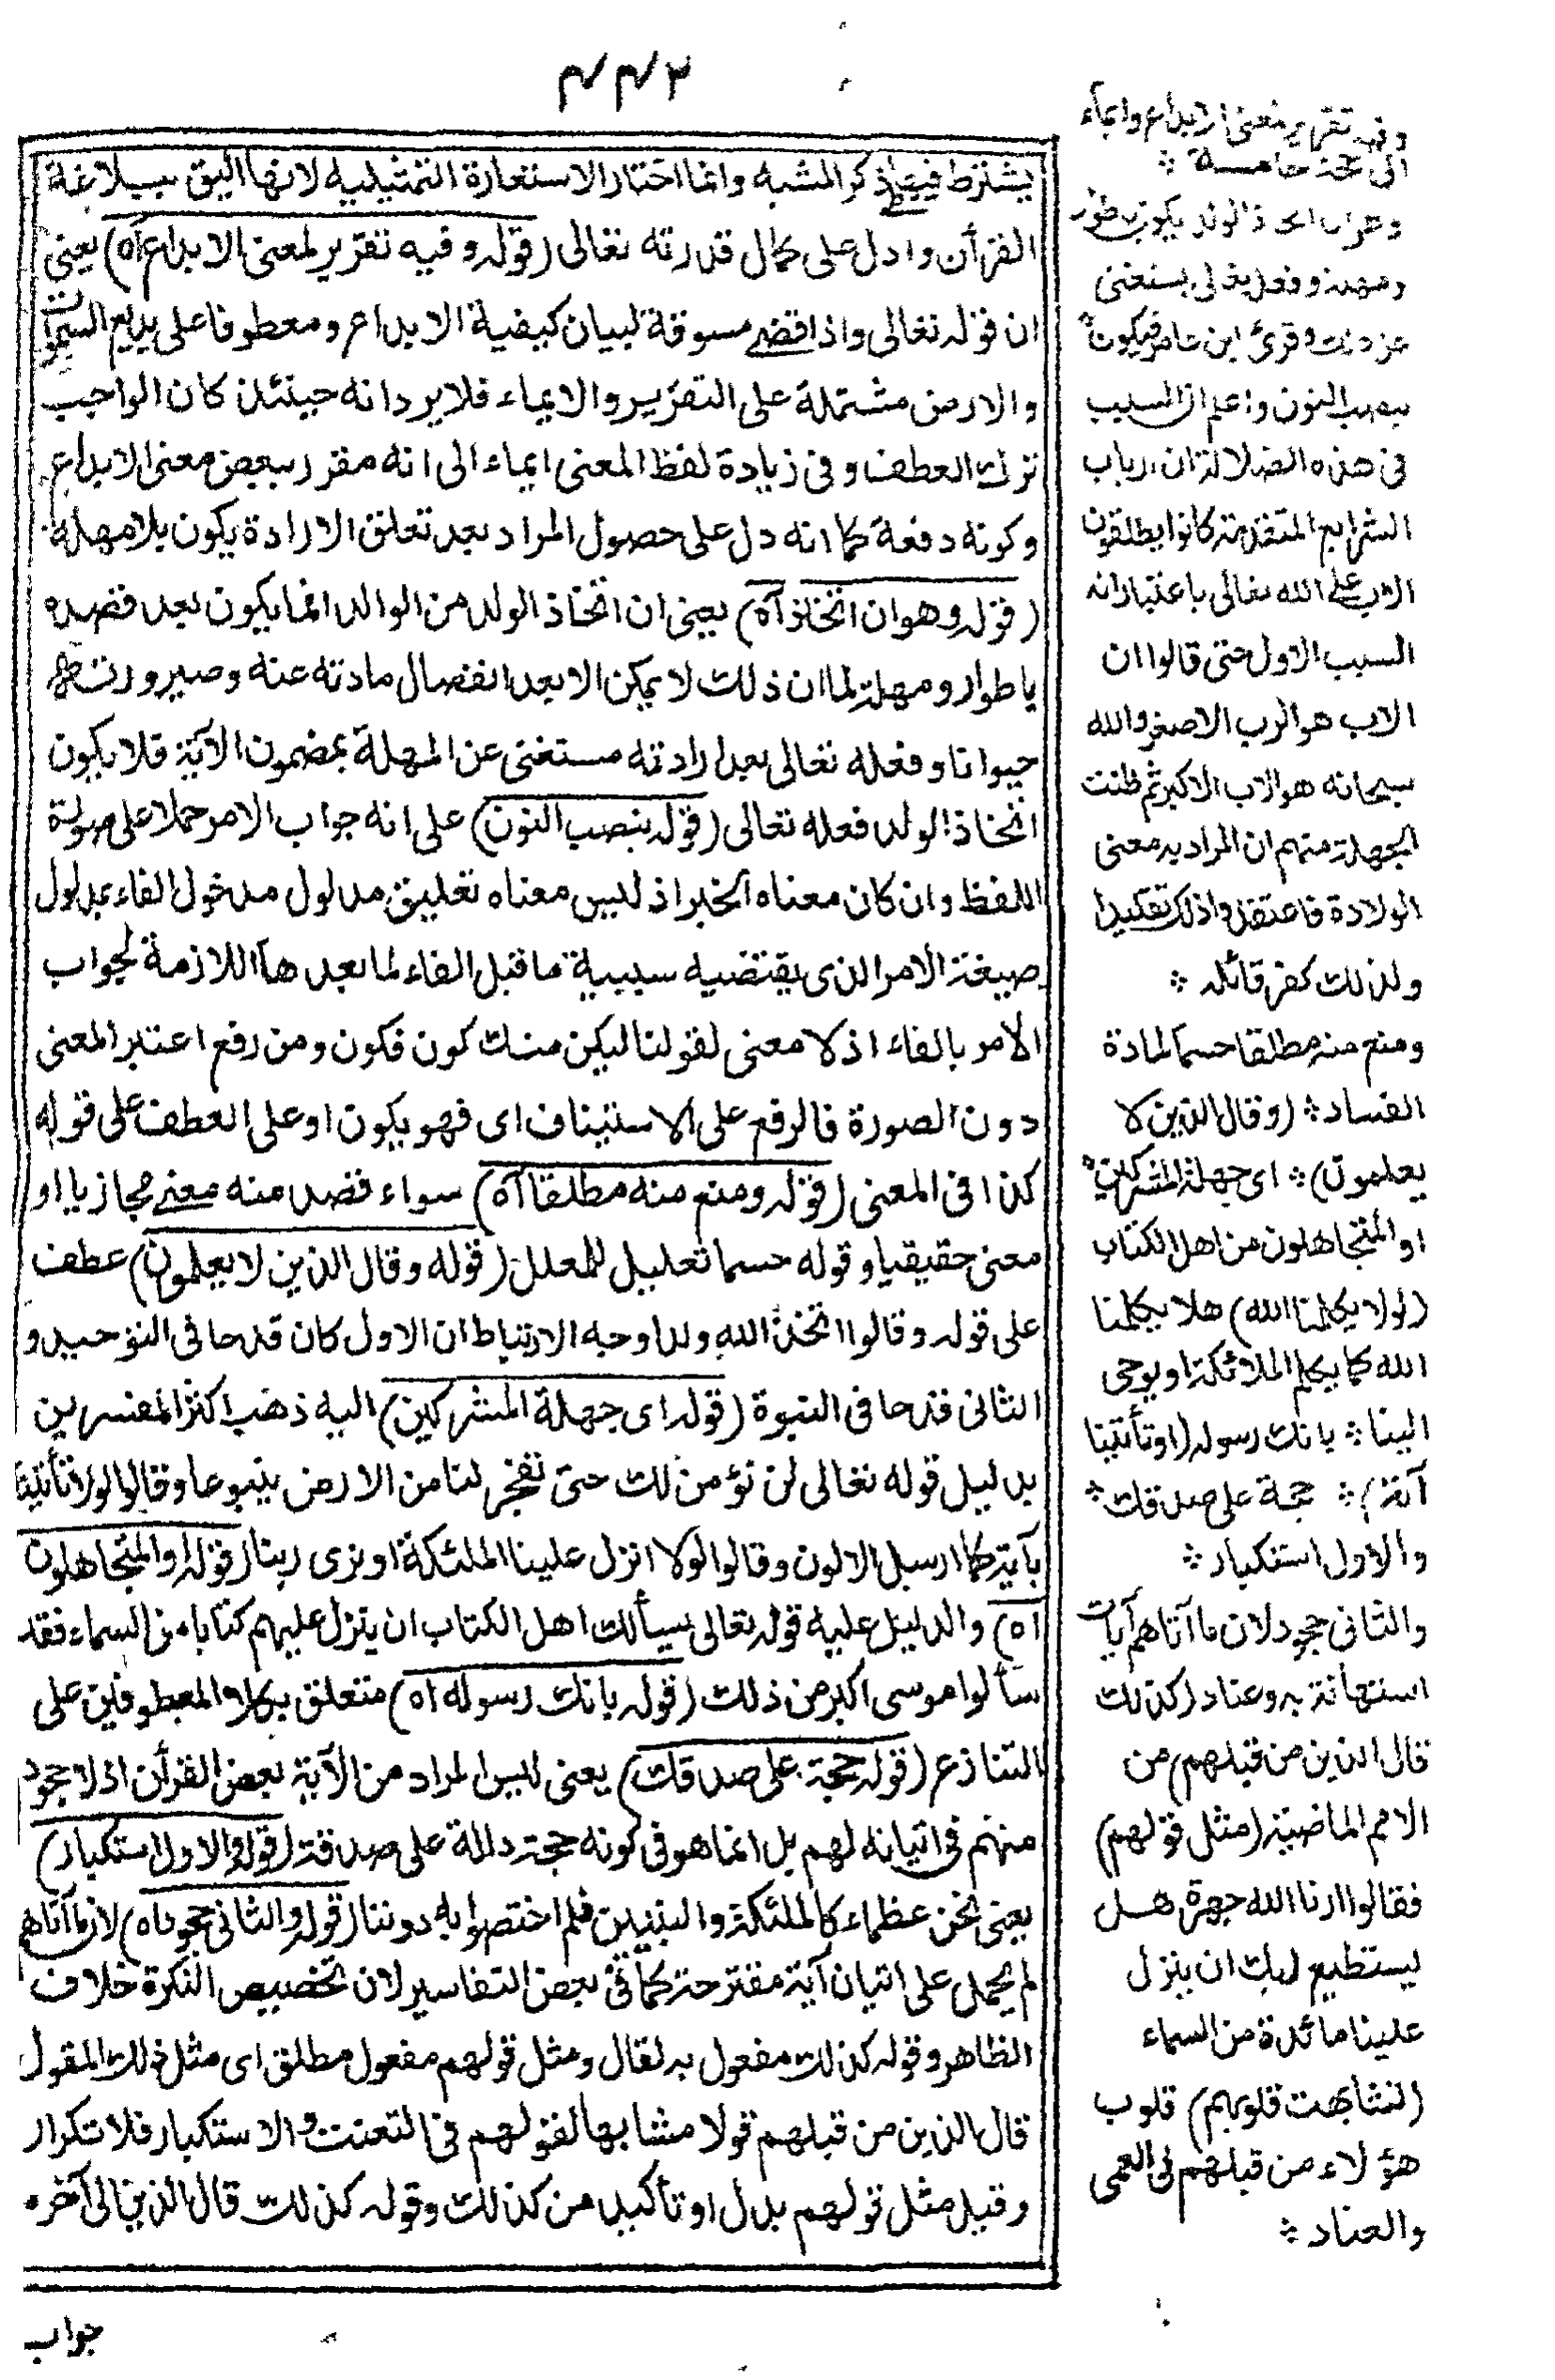 ٤٤٢
يشترط فيها ذكر المشبه وانما اختار الاستعارة التمثيلية لانها اليق ببلاغة
القرأن وادل على كمال قدرته تعالى (قوله وفيه تقرير لمعنى الابداع آه) يعنى
ان قوله تعالى واذا قضى مسوقة لبيان كيفية الابداع ومعطوفا على بديع السموات
والارض مشتملة على التقرير والايماء فلا يرد انه حينئذ كان الواجب
ترك العطف وفى زيادة لفظ المعنى ايماء الى انه مقرر ببعض معنى الابداع
وكونه دفعة كما انه دل على حصول المراد بعد تعلق الارادة يكون بلا مهلة
(قوله وهو ان اتخاذ آه) يعنى ان اتخاذ الولد من الوالد انما يكون بعد قصده
باطوار ومهلة لما ان ذلك لا يمكن الا بعد انفصال مادته عنه وصيرورتها
حيوانا وفعله تعالى بعد ارادته مستغنى عن المهلة بمضمون الآية فلا يكون
اتخاذ الولد فعله تعالى (قوله بنصب النون) على انه جواب الامر حملا على صورة
اللفظ وان كان معناه الخبر اذ ليس معناه تعليق مدلول مدخول الفاء بمدلول
صيغة الامر الذى يقتضيه سببية ما قبل الفاء لما بعدها اللازمة لجواب
الامر بالفاء اذ لا معنى لقولنا ليكن منك كون فكون ومن رفع اعتبر المعنى
دون الصورة فالرفع على الاستيناف اى فهو يكون او على العطف على قوله
كذا فى المعنى (قوله ومنع منه مطلقا آه) سواء قصد منه معنى مجازيا او
معنى حقيقيا وقوله حسما تعليل للمعلل (قوله وقال الذين لا يعلمون) عطف
على قوله وقالوا اتخذ الله ولدا وجه الارتباط ان الاول كان قدحا فى التوحيد و
الثانى قدحا فى النبوة (قوله اى جهلة المشركين) اليه ذهب اكثر المفسرين
بدليل قوله تعالى لن نؤمن لك حتى تفجر لنا من الارض ينبوعا وقالوا لولا تأتينا
بآية كما ارسل الالون وقالوا لولا انزل علينا الملئكة او نرى ربنا (قوله او المتجاهلون
اه) والدليل عليه قوله تعالى يسألك اهل الكتاب ان ينزل عليهم كتابا من السماء فقد
سألوا موسى اكبر من ذلك (قوله بانك رسوله اه) متعلق بكلا المعطوفين على
التنازع (قوله حجة على صدقك) يعنى ليس المراد من الآية بعض القرأن اذ لا جحود
منهم فى اتيانه لهم بل انما هو فى كونه حجة دالة على صدقه (قوله والاول استكبار)
يعنى نحن عظماء كالملئكة والنبيين فلم اختصوا به دوننا (قوله والثانى جحود اه) لان ما آتاهم
لم يحمل على اتيان آية مقترحة كما فى بعض التفاسير لان تخصيص النكرة خلاف
الظاهر وقوله كذلك مفعول به لقال ومثل قولهم مفعول مطلق اى مثل ذلك المقول
قال الذين من قبلهم قولا مشابها لقولهم فى التعنت والاستكبار فلا تكرار
وقيل مثل قولهم بدل او تأكيد من كذلك وقوله كذلك قال الذين الى آخره
جواب
وفيه تقرير معنى الابداع وايماء
الى حجة خامسة
وهى ان اتخاذ الولد يكون باطوار
ومهلة وفعله تعالى يستغنى
عن ذلك وقرئ ابن عامر فيكون
بنصب النون واعلم ان السبب
فى هذه الضلالة ان ارباب
الشرايع المتقدمة كانوا يطلقون
الاب على الله تعالى باعتبار انه
السبب الاول حتى قالوا ان
الاب هو الرب الاصغر والله
سبحانه هو الاب الاكبر ثم ظنت
الجهلة منهم ان المراد به معنى
الولادة فاعتقدوا ذلك تقليدا
ولذلك كفر قائله
ومنع منه مطلقا حسما لمادة
الفساد (وقال الذين لا
يعلمون) اى جهلة المشركين
او المتجاهلون من اهل الكتاب
(لولا يكلمنا الله) هلا يكلمنا
الله كما يكلم الملائكة او يوحى
الينا بانك رسوله (او تأتينا
آية) حجة على صدقك
والاول استكبار
والثانى جحود لان ما آتاهم آيات
استهانة به وعنادا (كذلك
قال الذين من قبلهم) من
الامم الماضية (مثل قولهم)
فقالوا ارنا الله جهرة هل
يستطيع ربك ان ينزل
علينا مائدة من السماء
(تشابهت قلوبهم) قلوب
هؤلاء من قبلهم فى العمى
والعناد